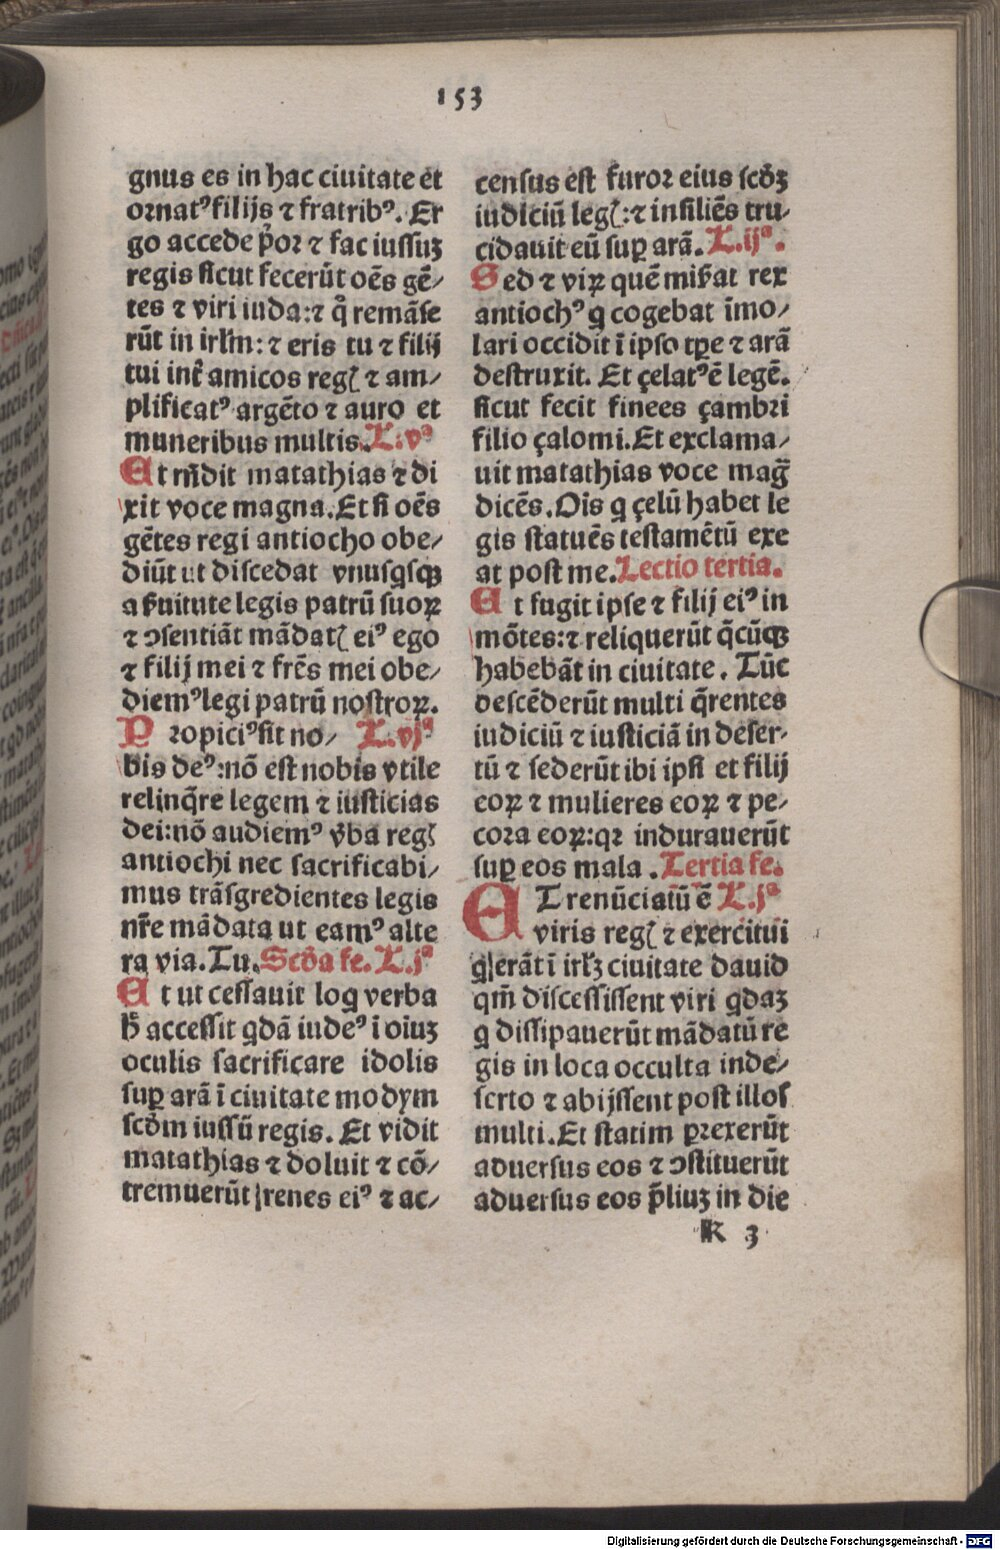 153
gnus es in hac ciuitate et
ornatꝰ filijs ⁊ fratribꝰ. Er
go accede p̓or ⁊ fac iussuꝫ
regis sicut fecerūt oēs gē⸗
tes ⁊ viri iuda:⁊ q̇ remāse
rūt in irl̓m: ⁊ eris tu ⁊ filij
tui int̓ amicos regꝭ ⁊ am⸗
plificatꝰ argēto ⁊ auro et
muneribus multis. L.vᵃ
Et rn̄dit matathias ⁊ di
xit voce magna. Et si oēs
gētes regi antiocho obe⸗
diūt ut discedat vnusqsqꝫ
a ẜuitute legis patrū suoꝝ
⁊ ↄsentiāt mādatꝭ eiꝰ ego
⁊ filij mei ⁊ frēs mei obe⸗
diemꝰ legi patrū nostroꝝ.
Propiciꝰ sit no⸗ L.vjᵃ
bis deꝰ:nō est nobis vtile
relinq̄re legem ⁊ iusticias
dei:nō audiemꝰ v̓ba regꝭ
antiochi nec sacrificabi⸗
mus trāsgredientes legis
nr̄e mādata ut eamꝰ alte
ra via. Tu. Scd̓a fe. L.jᵃ
Et ut cessauit loq verba
h̓ accessit qdā iudeꝰ ī oiuꝫ
oculis sacrificare idolis
suꝑ arā ī ciuitate modym
scd̓m iussū regis. Et vidit
matathias ⁊ doluit ⁊ cō⸗
tremuerūt renes eiꝰ ⁊ ac⸗
census est furor eius scd̓ꝫ
iudiciū legꝭ:⁊ insiliēs tru⸗
cidauit eū suꝑ arā. L.ijᵃ.
Sed ⁊ viꝝ quē miẜat rex
antiochꝰ q cogebat īmo⸗
lari occidit ī ipso tꝑe ⁊ arā
destruxit. Et çelatꝰ ē legē.
sicut fecit finees çambri
filio çalomi. Et exclama⸗
uit matathias voce maḡ
dicēs. Ois q çelū habet le
gis statuēs testamētū exe
at post me. Lectio tertia.
Et fugit ipse ⁊ filij eiꝰ in
mōtes:⁊ reliquerūt q̄cūqꝫ
habebāt in ciuitate. Tūc
descēderūt multi q̄rentes
iudiciū ⁊ iusticiā in deser⸗
tū ⁊ sederūt ibi ipsi et filij
eoꝝ ⁊ mulieres eoꝝ ⁊ pe⸗
cora eoꝝ:qꝛ indurauerūt
suꝑ eos mala. Tertia fe.
ET renūciatū ē L.jᵃ
viris regꝭ ⁊ exercitui
q erāt ī irl̓ꝫ ciuitate dauid
qm̄ discessissent viri qdaꝫ
q dissipauerūt mādatū re
gis in loca occulta inde⸗
serto ⁊ abijssent post illos
multi. Et statim ꝑrexerūt
aduersus eos ⁊ ↄstituerūt
aduersus eos p̄liuꝫ in die
K 3
Digitalisierung gefördert durch die Deutsche Forschungsgemeinschaft - DFG